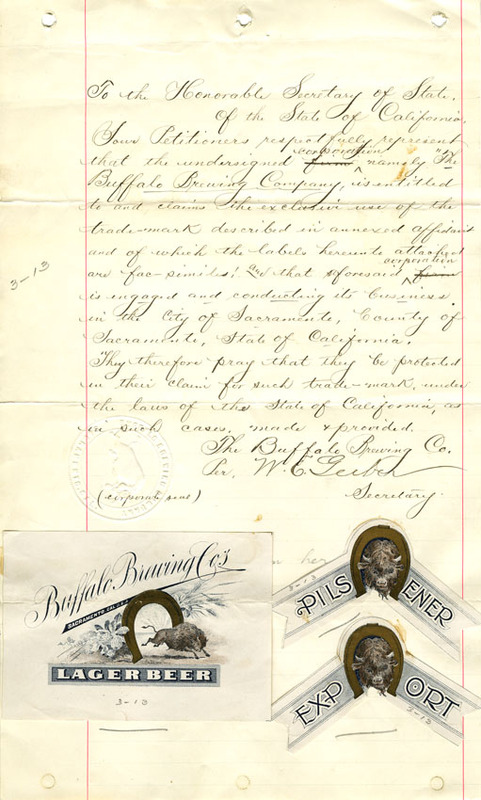 To the Honorable Secretary of State.
Of the State of California.
Your Petitioners respectfully represent
corporation
that the undersigned firm namely "The
Buffalo Brewing Company, is entitled
to and claims the exclusive use of the
trade-mark described in annexed affidavit
and of which the labels hereunto attached
corporation
are fac-similes; and that aforesaid firm
is engaged and conducting its business
in the City of Sacramento, County of
Sacramento, State of California.
They therefore pray that they be protected
in their claim for such trade-mark, under
the laws of the State of California, as
in such cases, made & provided.
The Buffalo Brewing Co.
Per, W. E. Gerber
Secretary.
(corporate seal)
3-13
Buffalo Brewing Co's
SACRAMENTO CAL.
LAGER BEER
3-13
3-13
PILSENER
EXPORT
3-13